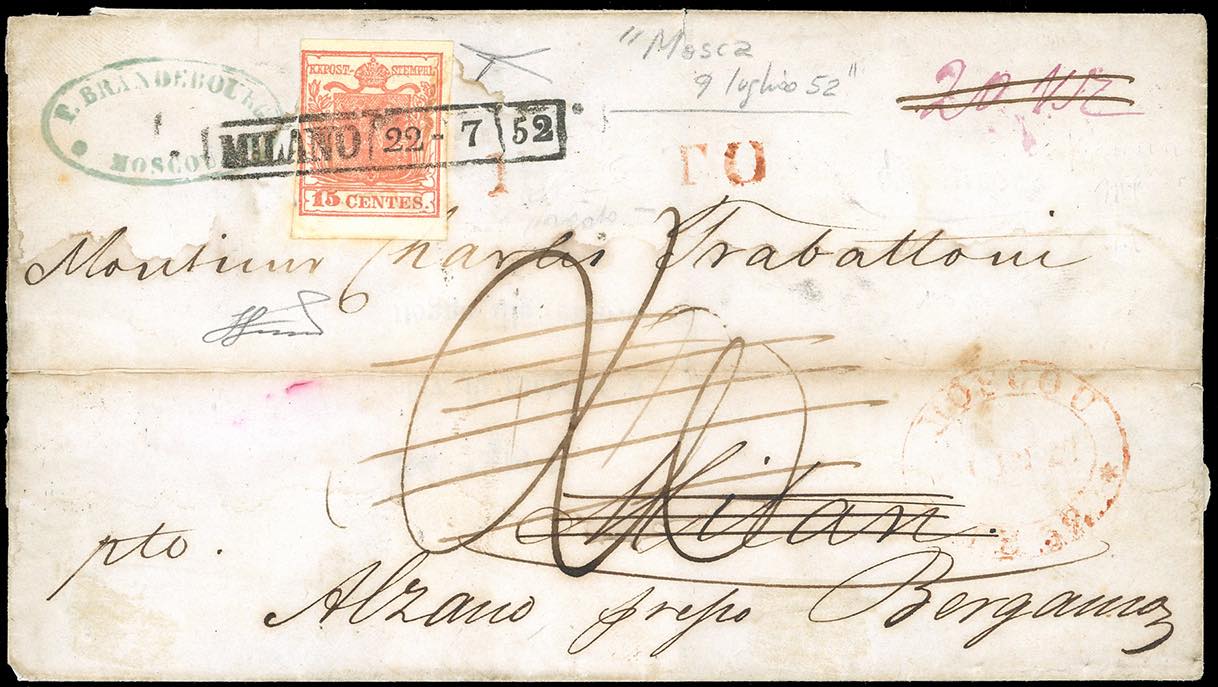 P. BRANDEBOURG
MOSCOU
KKPOST-STEMPEL
15 CENTES.
MILANO 22-7 52
"Mosca
9 luglio 52"
1
T.O
Monsieur Charles Trabattoni
Milan.
MOSCOU
pto.
Alzano presso Bergamo